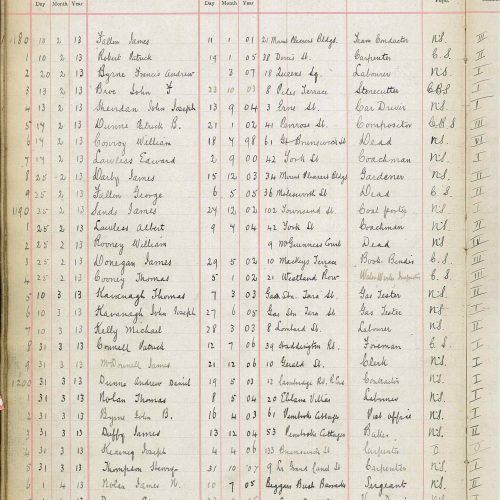 Day Month Year Day Month Year
1180 10 2 13 Fallon James 11 1 01 21 Mount Pleasant Bldgs. Tram Conductor N.S. III
1 10 2 13 Robert Patrick 19 1 05 38 Denis St. Carpenter C.S. I
2 20 2 13 Byrne Francis Andrew 3 07 18 Queens Sq. Labourer N.S. I
3 13 2 13 John F. 23 10 03 8 Terrace Stonecutter C.B.S I
4 13 2 13 Sheridan John Joseph 13 9 04 3 St. Car Driver N.S. I
5 17 2 13 Dunne Patrick 21 1 02 41 Penrose St. Compositor C.B.S III
6 17 2 13 Conroy William 18 7 98 61 Gt Brunswick St Dead N.S. VI
7 17 2 13 Lawless Edward 2 9 00 42 York St Coachman N.S. I
8 25 2 13 Darby James 15 12 03 34 Mount Pleasant Bldgs Gardener N.S. II
9 25 2 13 Fallon George 6 5 05 36 Molesworth St. Dead C S I
1190 25 2 13 Sands James 24 12 02 102 Townsend St. Coal porter N.S. I
1 25 2 13 Lawless Albert 9 7 04 42 York St Coachman N.S. II
2 25 2 13 Rooney William 9 McGuinness Court Dead N.S.
3 25 2 13 Donegan James 29 5 02 10 Mackeys Terrace Book Binder C.S. III
4 25 2 13 Cooney Thomas 5 1 02 21 Westland Row Water Works Inspector C.S. III
5 10 3 13 Kavanagh Thomas 7 3 03 Gas Stn. Tara St. Gas Tester N.S. I
6 10 3 13 Kavanagh John Joseph 27 6 05 Gas Stn Tara St. Gas Tester N.S. I
7 10 3 13 Kelly Michael 28 3 03 8 Lombard St. Labourer N.S. II
8 31 3 13 Connell Patrick 12 7 06 39 Haddington Rd. Foreman C S I
9 31 3 13 McDonnell James 21 12 06 10 Gerald St. Clerk N.S. I
1200 31 3 13 Dunne Andrew Daniel 19 5 03 12 Cambridge Rd. Contractor N.S. I
1 31 3 13 Nolan Thomas 8 5 04 20 Eblana Villas Labourer N.S. I
2 31 3 13 Byrne John B. 16 4 03 61 Pembroke Cottages Post office N.S. I
3 31 3 13 Duffy James 13 12 04 53 Pembroke Cottages Baker N.S. II
4 31 3 13 James 4 4 06 133 Brunswick St Carpenter
5 31 3 13 Thompson Henry 31 10 07 9 Carpenter N.S. I
6 1 4 13 Nolan James 10 7 05 Beggars Bush Barracks Sergeant N.S. I